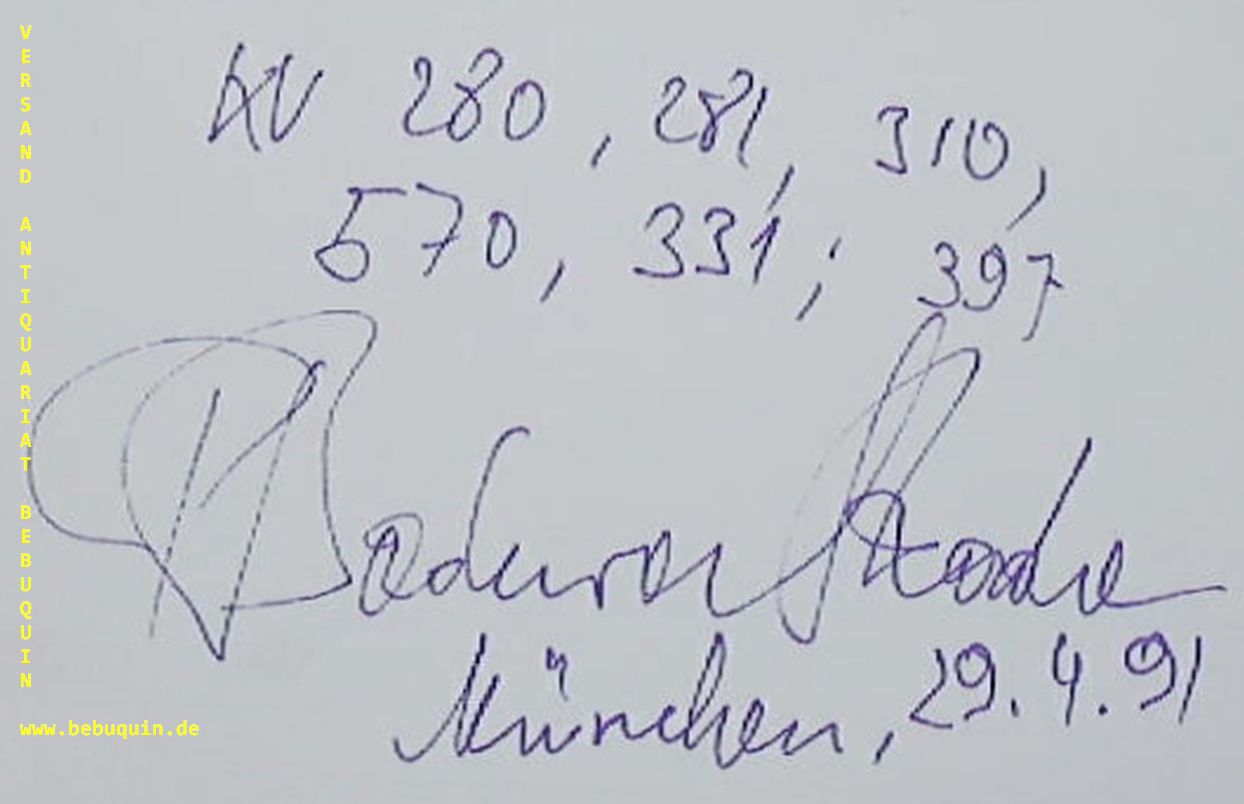 KV 280, 281, 310,
570, 331; 397
München, 29.4.91
VERSAND ANTIQUARIAT BEBUQUIN
www.bebuquin.de